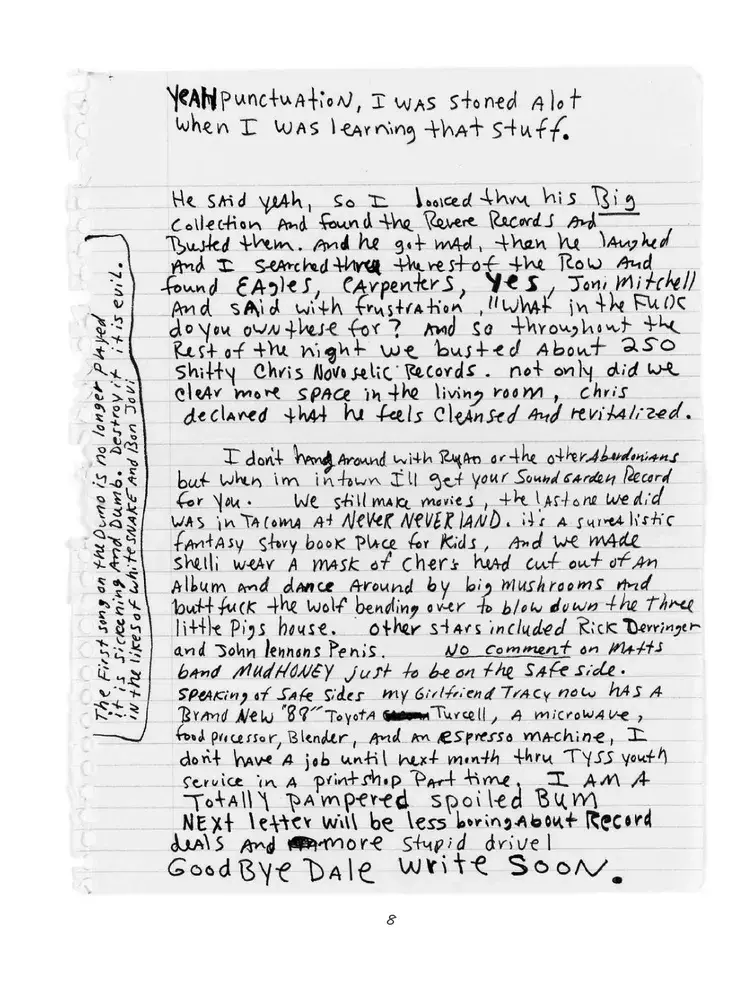 YeAH punctuAtioN, I wAs stoned Alot
when I WAS leArning thAt Stuff.
He SAid yeAh, so I looked thru his Big
Collection And found the Revere Records And
Busted them. And he got mAd, then he lAughed
And I SeArched thru the rest of the Row And
found EAgles, CArpenters, Yes, Joni Mitchell
And sAid with frustrAtion, "WhAt in the FUCK
do you own these for? And so throughout the
Rest of the night we busted About 250
Shitty Chris Novoselic Records. not only did we
cleAr more SpAce in the living room, chris
declAred thAt he feels CleAnsed And revitAlized.
I don't hang Around with RyAn or the other Aberdonians
but when im in town I'll get your Soundgarden Record
for you. We still make movies, the lAst one we did
WAS in TAcomA At NeVeR NeVERlAND. it's A surreAlistic
fAntAsy Story book PlAce for Kids, And we mAde
Shelli weAr A mAsk of Cher's heAd cut out of An
Album And dAnce Around by big mushrooms And
butt fuck the wolf bending over to blow down the Three
little Pigs house. other stArs included Rick Derringer
and John lennons Penis. No comment on MAtts
bAnd MUDHONEY just to be on the SAfe side.
SpeAking of SAfe Sides my Girlfriend Tracy now hAs A
BrAnd New "88" ToyotA Turcell, A microwAve,
food processor, Blender, And An espresso mAchine, I
don't hAve A job until next month thru TYSS youth
Service in A print shop PArt time, I AM A
TotAllY pAmpered spoiled Bum
NEXt letter will be less boring About Record
deAls And more stupid drivel
Good BYe DAle write SooN.
The First song on the Demo is no longer PlAyed
it is Sickening And Dumb. Destroy it it is evil.
IN the likes of whitesNAKE And Bon Jovi
8